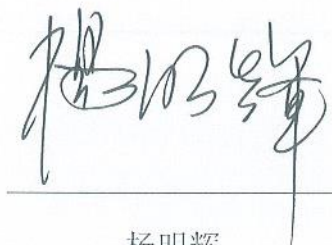 楊明輝
杨明辉